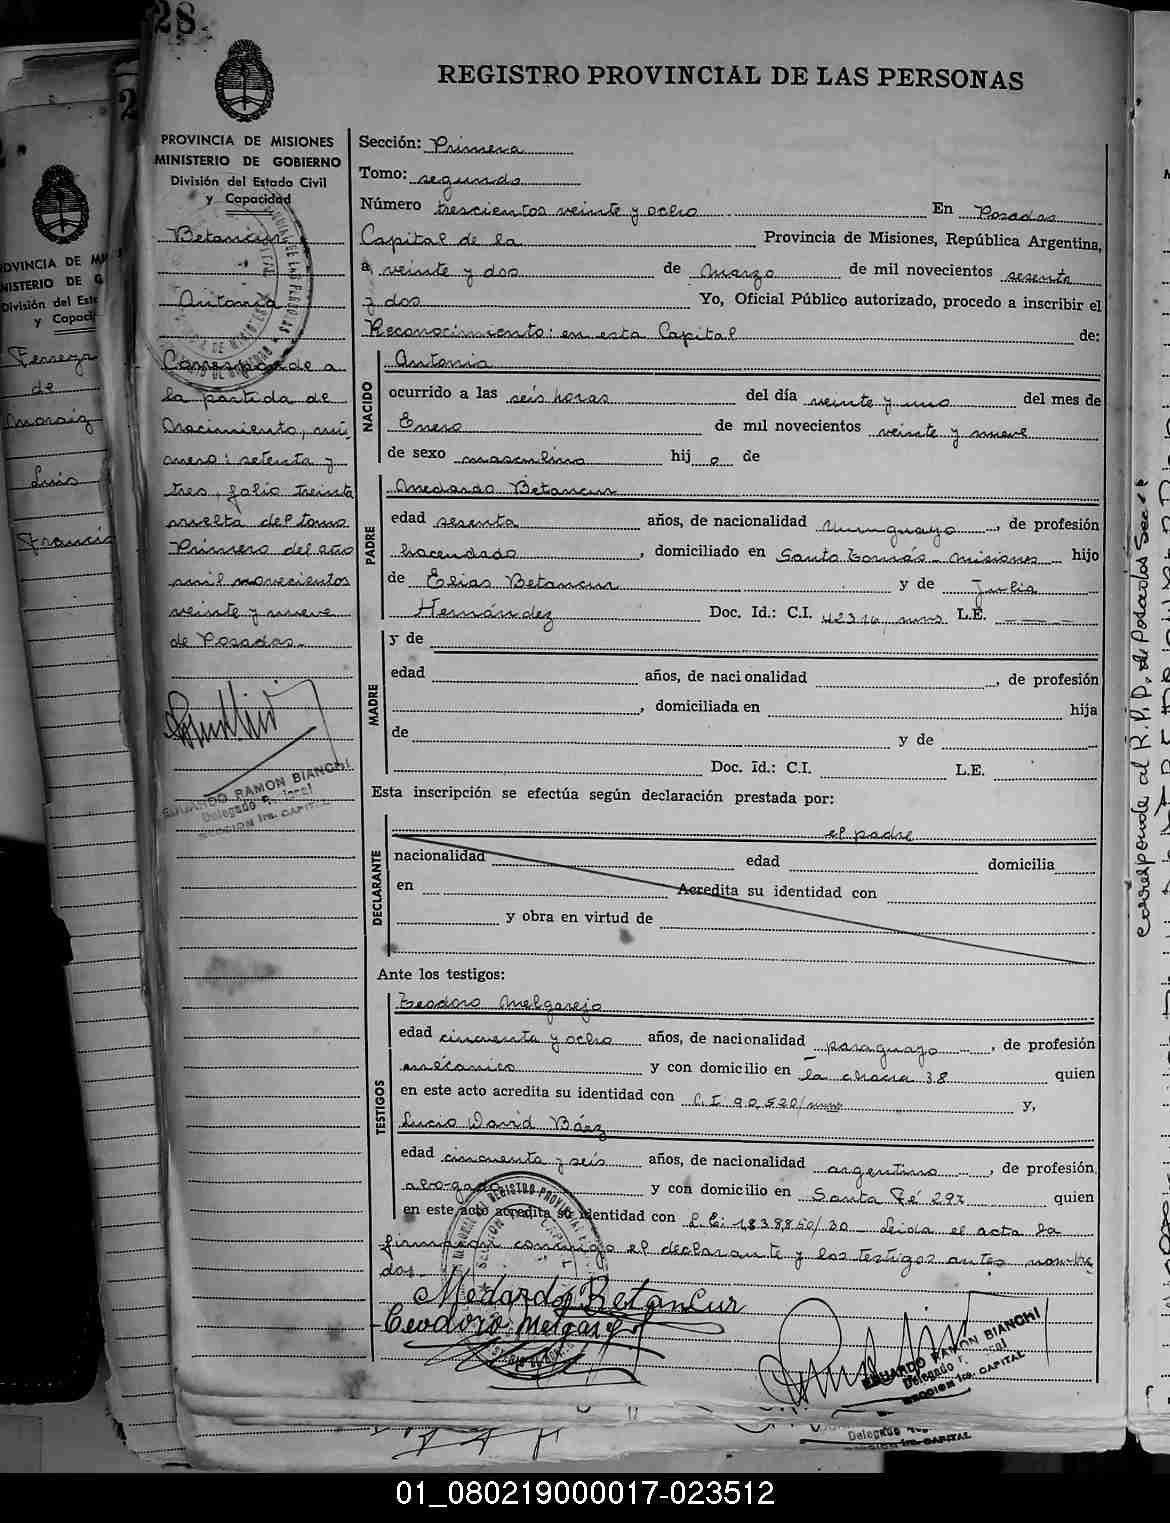 28
REGISTRO PROVINCIAL DE LAS PERSONAS
PROVINCIA DE MISIONES
MINISTERIO DE GOBIERNO
División del Estado Civil
y Capacidad
Betancur
Antonia
Corresponde a
la partida de
Nacimiento, nú-
mero: setenta y
tres, folio treinta
vuelta del tomo
Primero del año
mil novecientos
veinte y nueve
de Posadas.-
EDUARDO RAMON BIANCHI
Delegado Regional
SECCION 1ra. CAPITAL
Sección: Primera
Tomo: segundo
Número trescientos veinte y ocho En Posadas
Capital de la Provincia de Misiones, República Argentina,
a veinte y dos de Marzo de mil novecientos sesenta
y dos Yo, Oficial Público autorizado, procedo a inscribir el
Reconocimiento: en esta Capital de:
NACIDO
Antonia
ocurrido a las seis horas del día veinte y uno del mes de
Enero de mil novecientos veinte y nueve
de sexo masculino hij o de
PADRE
Medardo Betancur
edad sesenta años, de nacionalidad Uruguayo, de profesión
hacendado, domiciliado en Santo Tomás - Misiones hijo
de Elias Betancur y de Julia
Hernández Doc. Id.: C.I. 42316, mns L.E.
MADRE
y de
edad años, de nacionalidad, de profesión
, domiciliada en hija
de y de
Doc. Id.: C.I. L.E.
Esta inscripción se efectúa según declaración prestada por:
DECLARANTE
el padre
nacionalidad edad domicilia
en Acredita su identidad con
y obra en virtud de
Ante los testigos:
TESTIGOS
Teodoro Melgarejo
edad cincuenta y ocho años, de nacionalidad paraguayo, de profesión
mecánico y con domicilio en la chacra 38 quien
en este acto acredita su identidad con C.I 90,520/mns y,
Lucio David Báez
edad cincuenta y seis años, de nacionalidad argentino, de profesión
abogado y con domicilio en Santa Fé 297 quien
en este acto acredita su identidad con L.E: 1,838,850/30 - Leida el acta la
firmaron conmigo el declarante y los testigos antes nombra
dos.-
Medardo Betancur
Teodoro Melgarejo
EDUARDO RAMON BIANCHI
Delegado Regional
SECCION 1ra. CAPITAL
Delegado
SECCION 1ra. CAPITAL
PROVINCIA DE
MINISTERIO DE G
División del Esta
y Capaci
Ferreyra
de
Luis
corresponde al R.P.P. de Posadas Secc
01_080219000017-023512